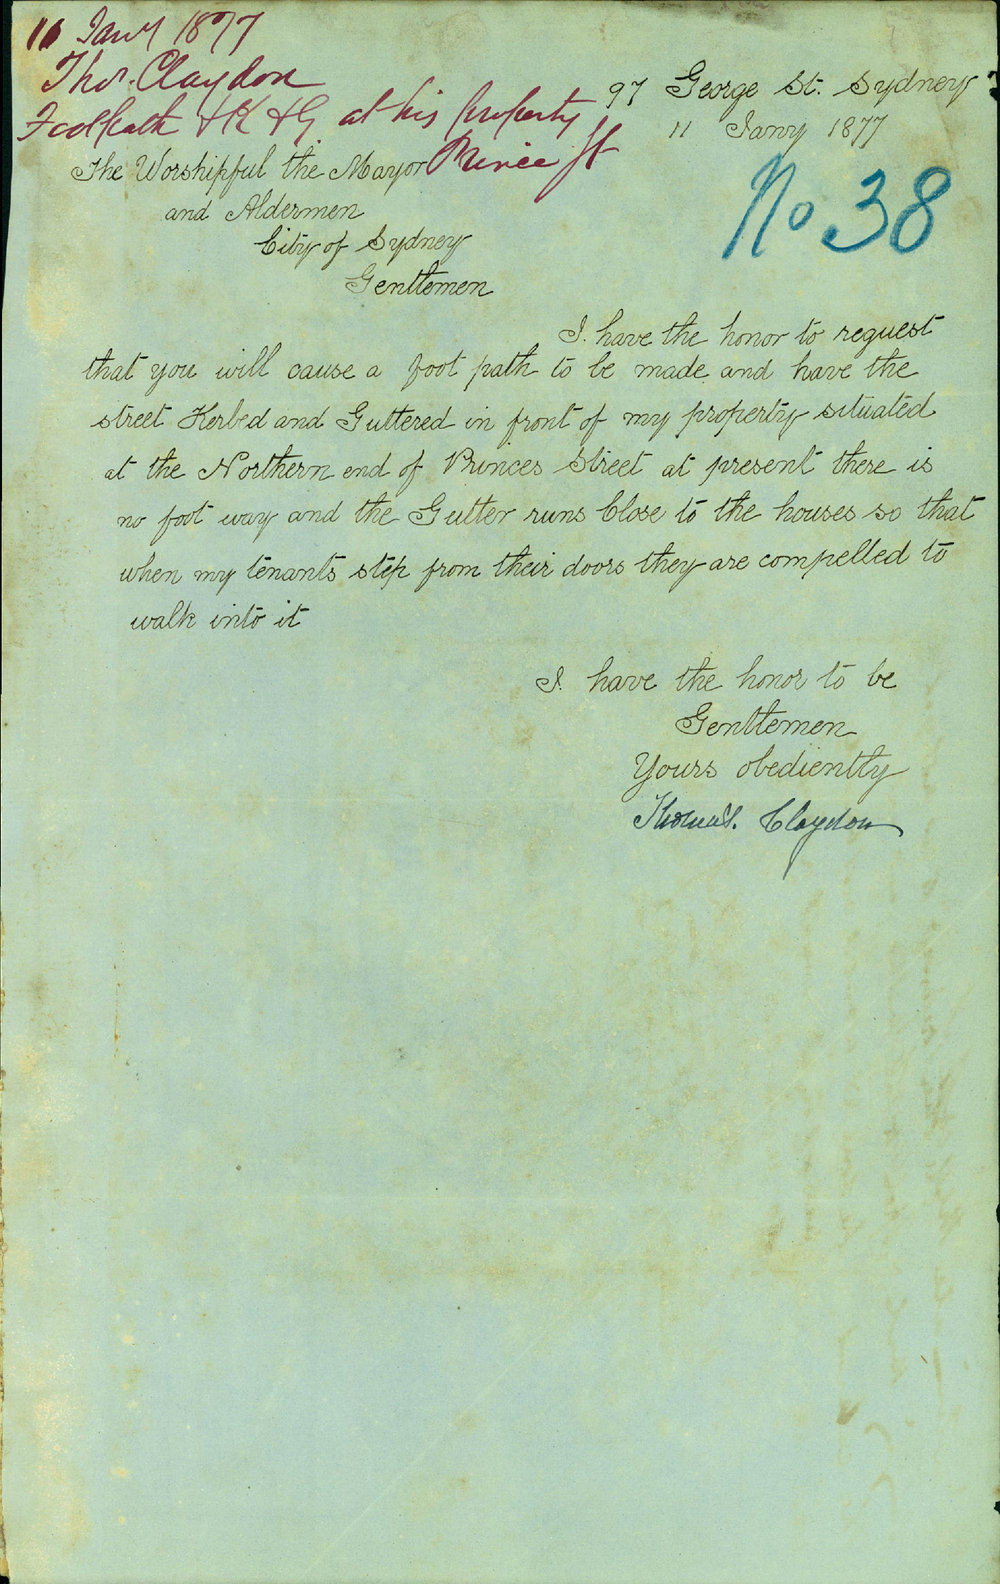 11 Jany 1877
Thos. Claydon
Footpath & K & G at his property
Prince St
97 George St. Sydney
11 Jany 1877
No 38
The Worshipful the Mayor
and Aldermen
City of Sydney
Gentlemen
I have the honor to request
that you will cause a foot path to be made and have the
street Kerbed and Guttered in front of my property situated
at the Northern end of Princes Street at present there is
no foot way and the Gutter runs Close to the houses so that
when my tenants step from their doors they are compelled to
walk into it
I have the honor to be
Gentlemen
Yours obediently
Thomas. Claydon